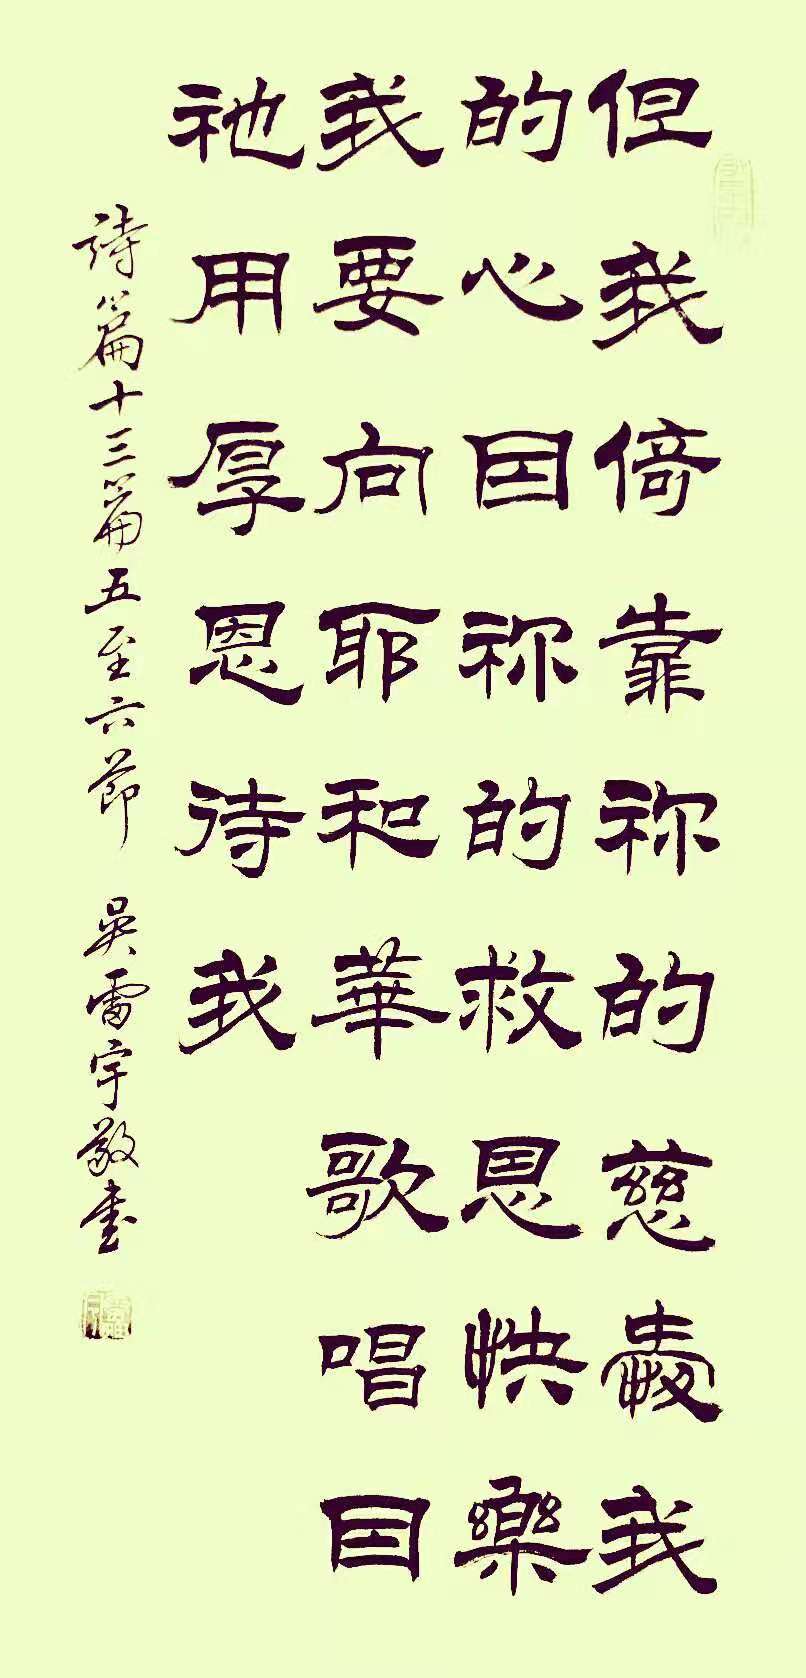 但我倚靠祢的慈愛我
的心因祢的救恩快樂
我要向耶和華歌唱因
祂用厚恩待我
詩篇十三篇五至六節 吳雷宇敬書